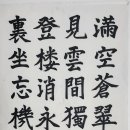 滿空蒼翠
見雲間獨
登楼消永
裏坐忘機